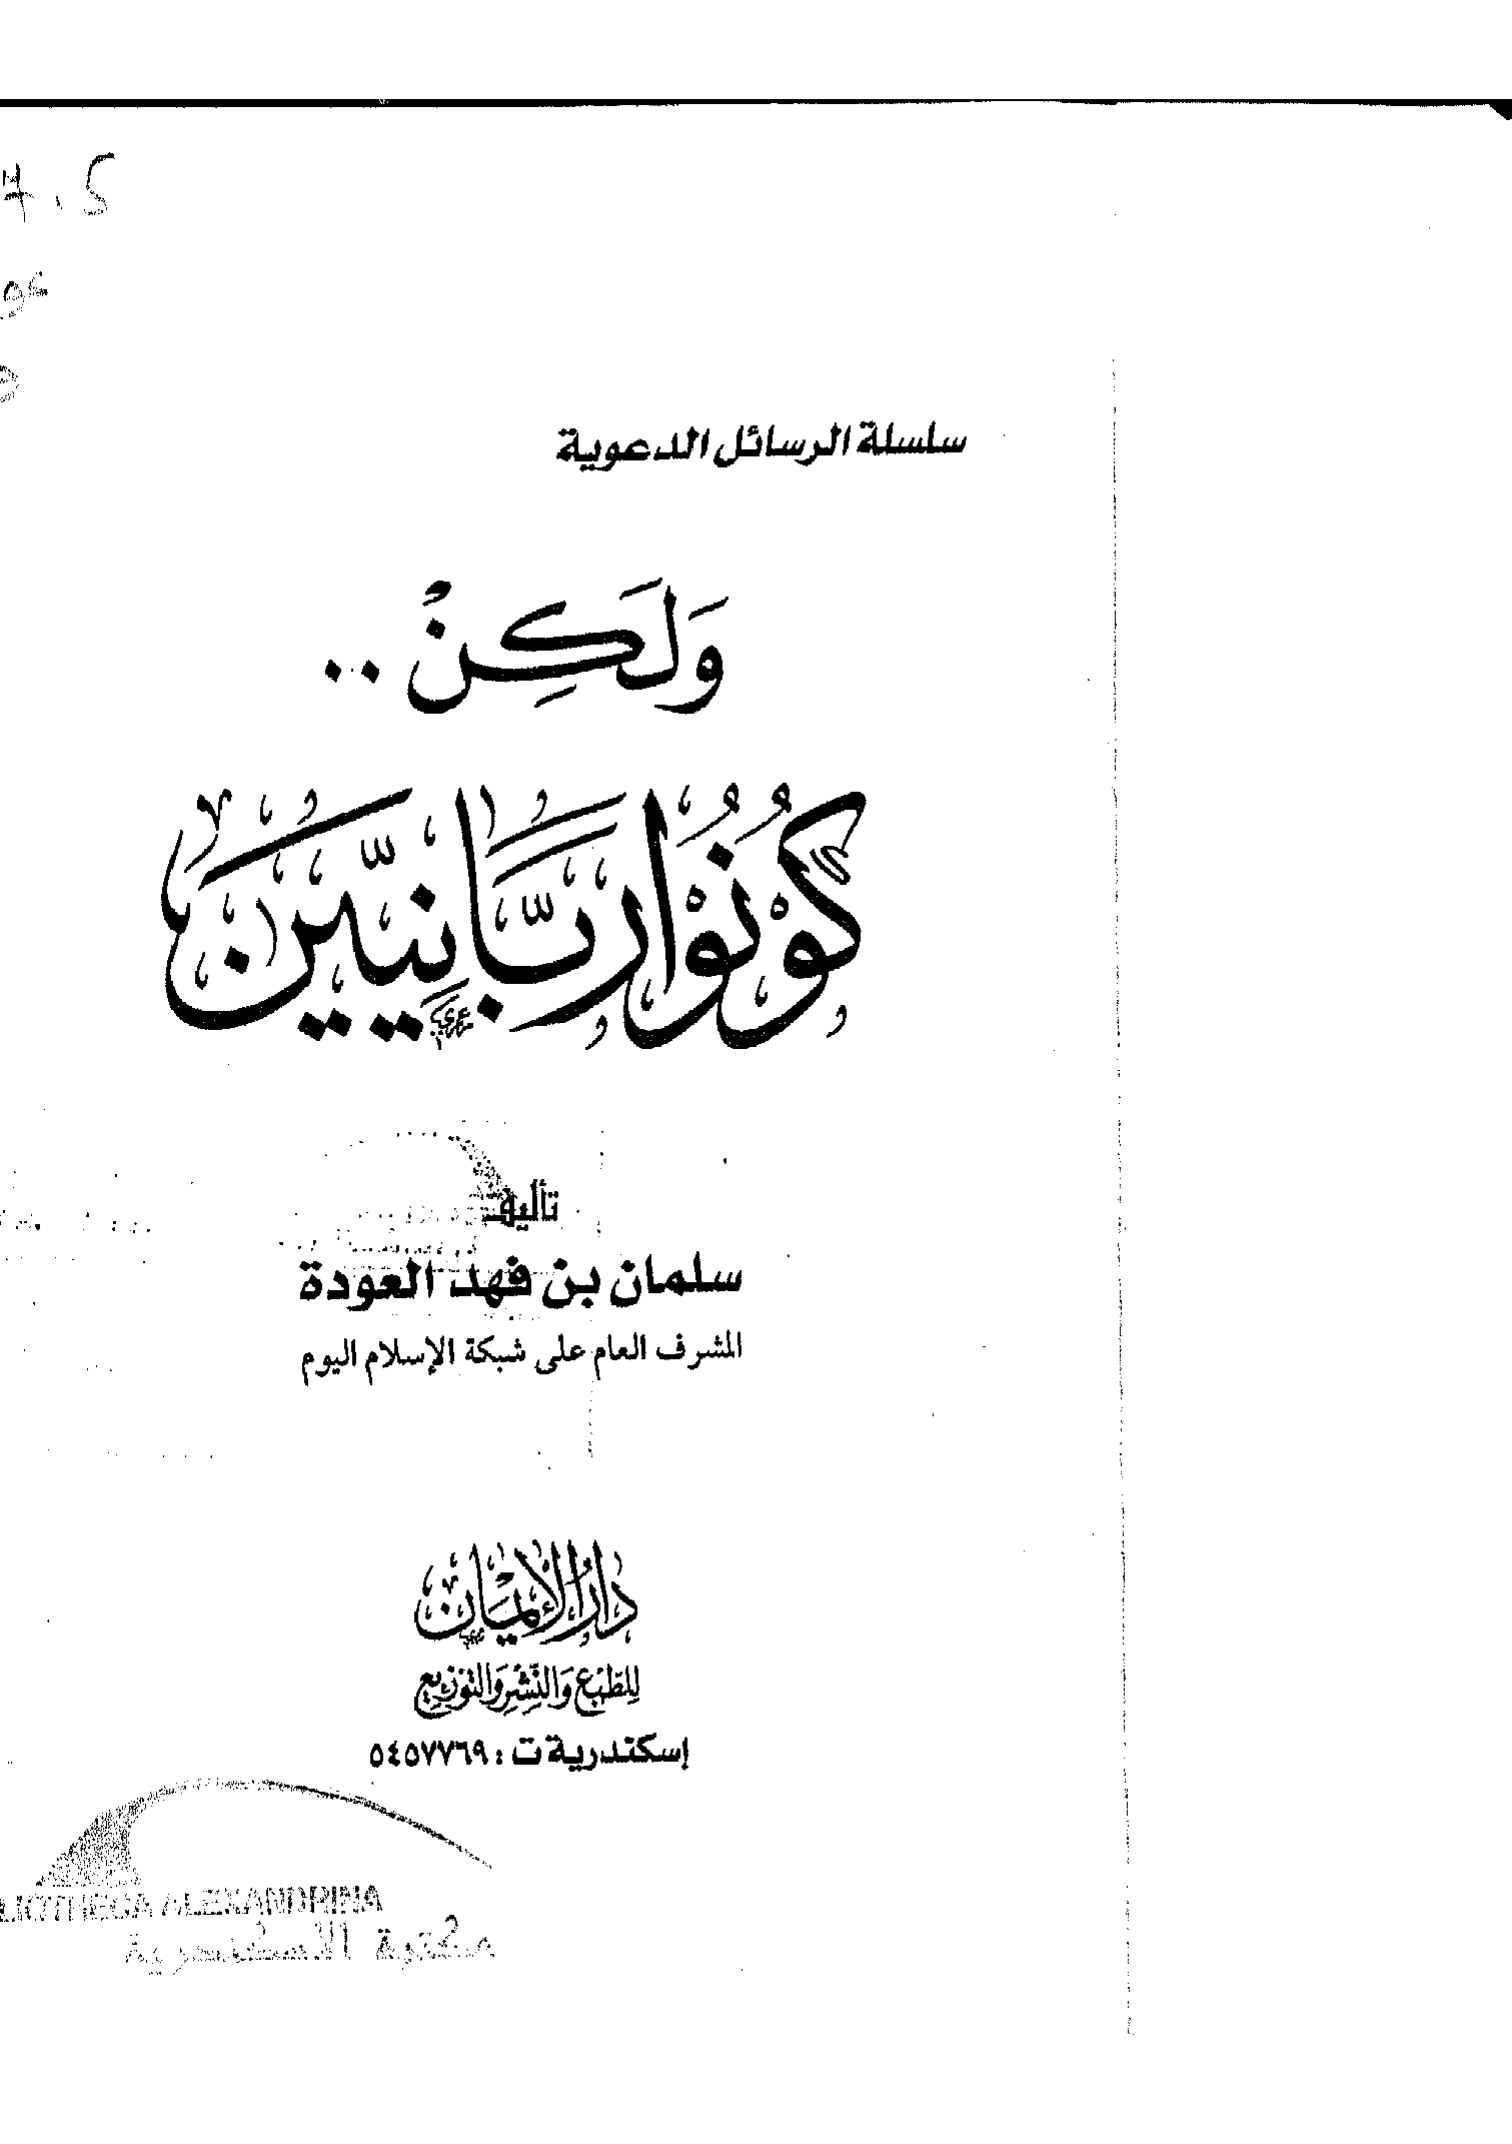 7.5
عو
سلسلة الرسائل الدعوية
وَلَكِنْ ..
كُوْنُوْا رَبَّانِيِّيْنَ
تأليف
سلمان بن فهد العودة
المشرف العام على شبكة الإسلام اليوم
دَارُ الْإِيمْان
لِلطَّبْعِ وَالنَّشْرِ وَالتَّوْزِيعِ
إسكندرية ت : ٥٤٥٧٧٦٩
LIOTHECA ALEXANDRINA
مكتبة الاسكندرية